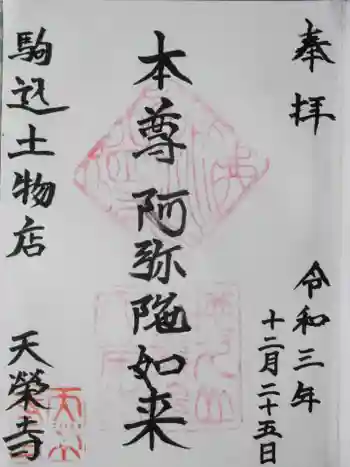 奉拝
令和三年
十二月二十五日
本尊 阿弥陀如来
駒込土物店
天榮寺